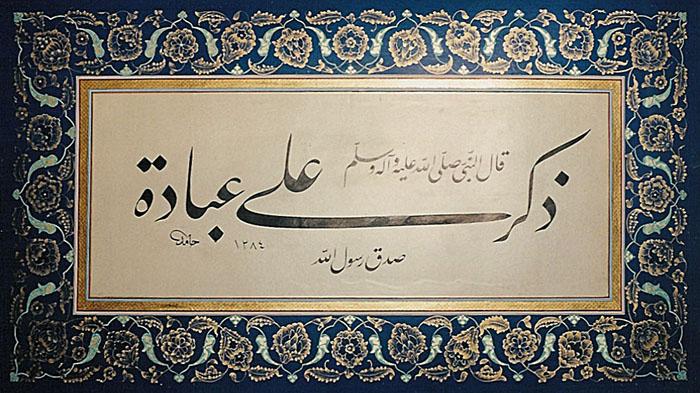 قال النبي صلى الله عليه وآله وسلم
ذكر علي عبادة
صدق رسول الله
حامد ١٢٨٤